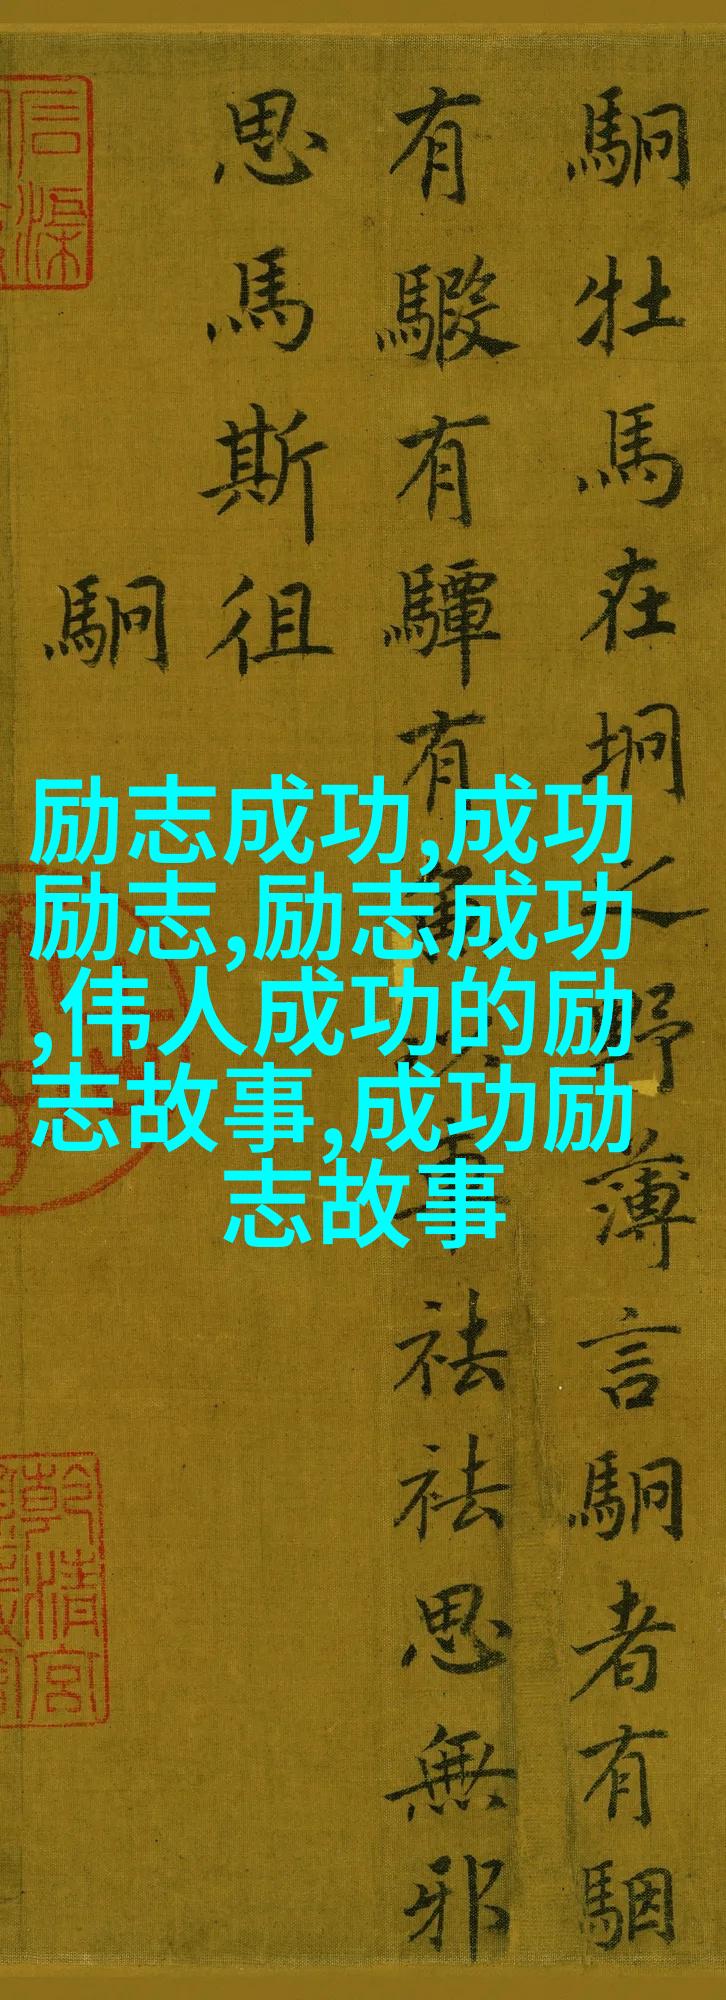 駉牡馬在坰之野薄言駉者有駰
有騢有驔有車祛祛思無邪
思馬斯徂
駉
励志成功,成功
励志,励志成功
,伟人成功的励
志故事,成功励
志故事
乾清宮